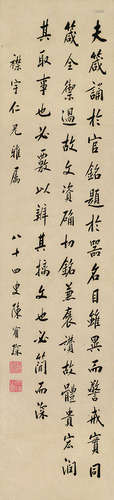 夫箴誦於官銘題於器名目雖異而警戒實同
箴全禦過故文資确切銘兼褒讚故體貴宏潤
其取事也必覈以辨其摛文也必簡而深
襟宇仁兄雅屬 八十四叟陳寶琛